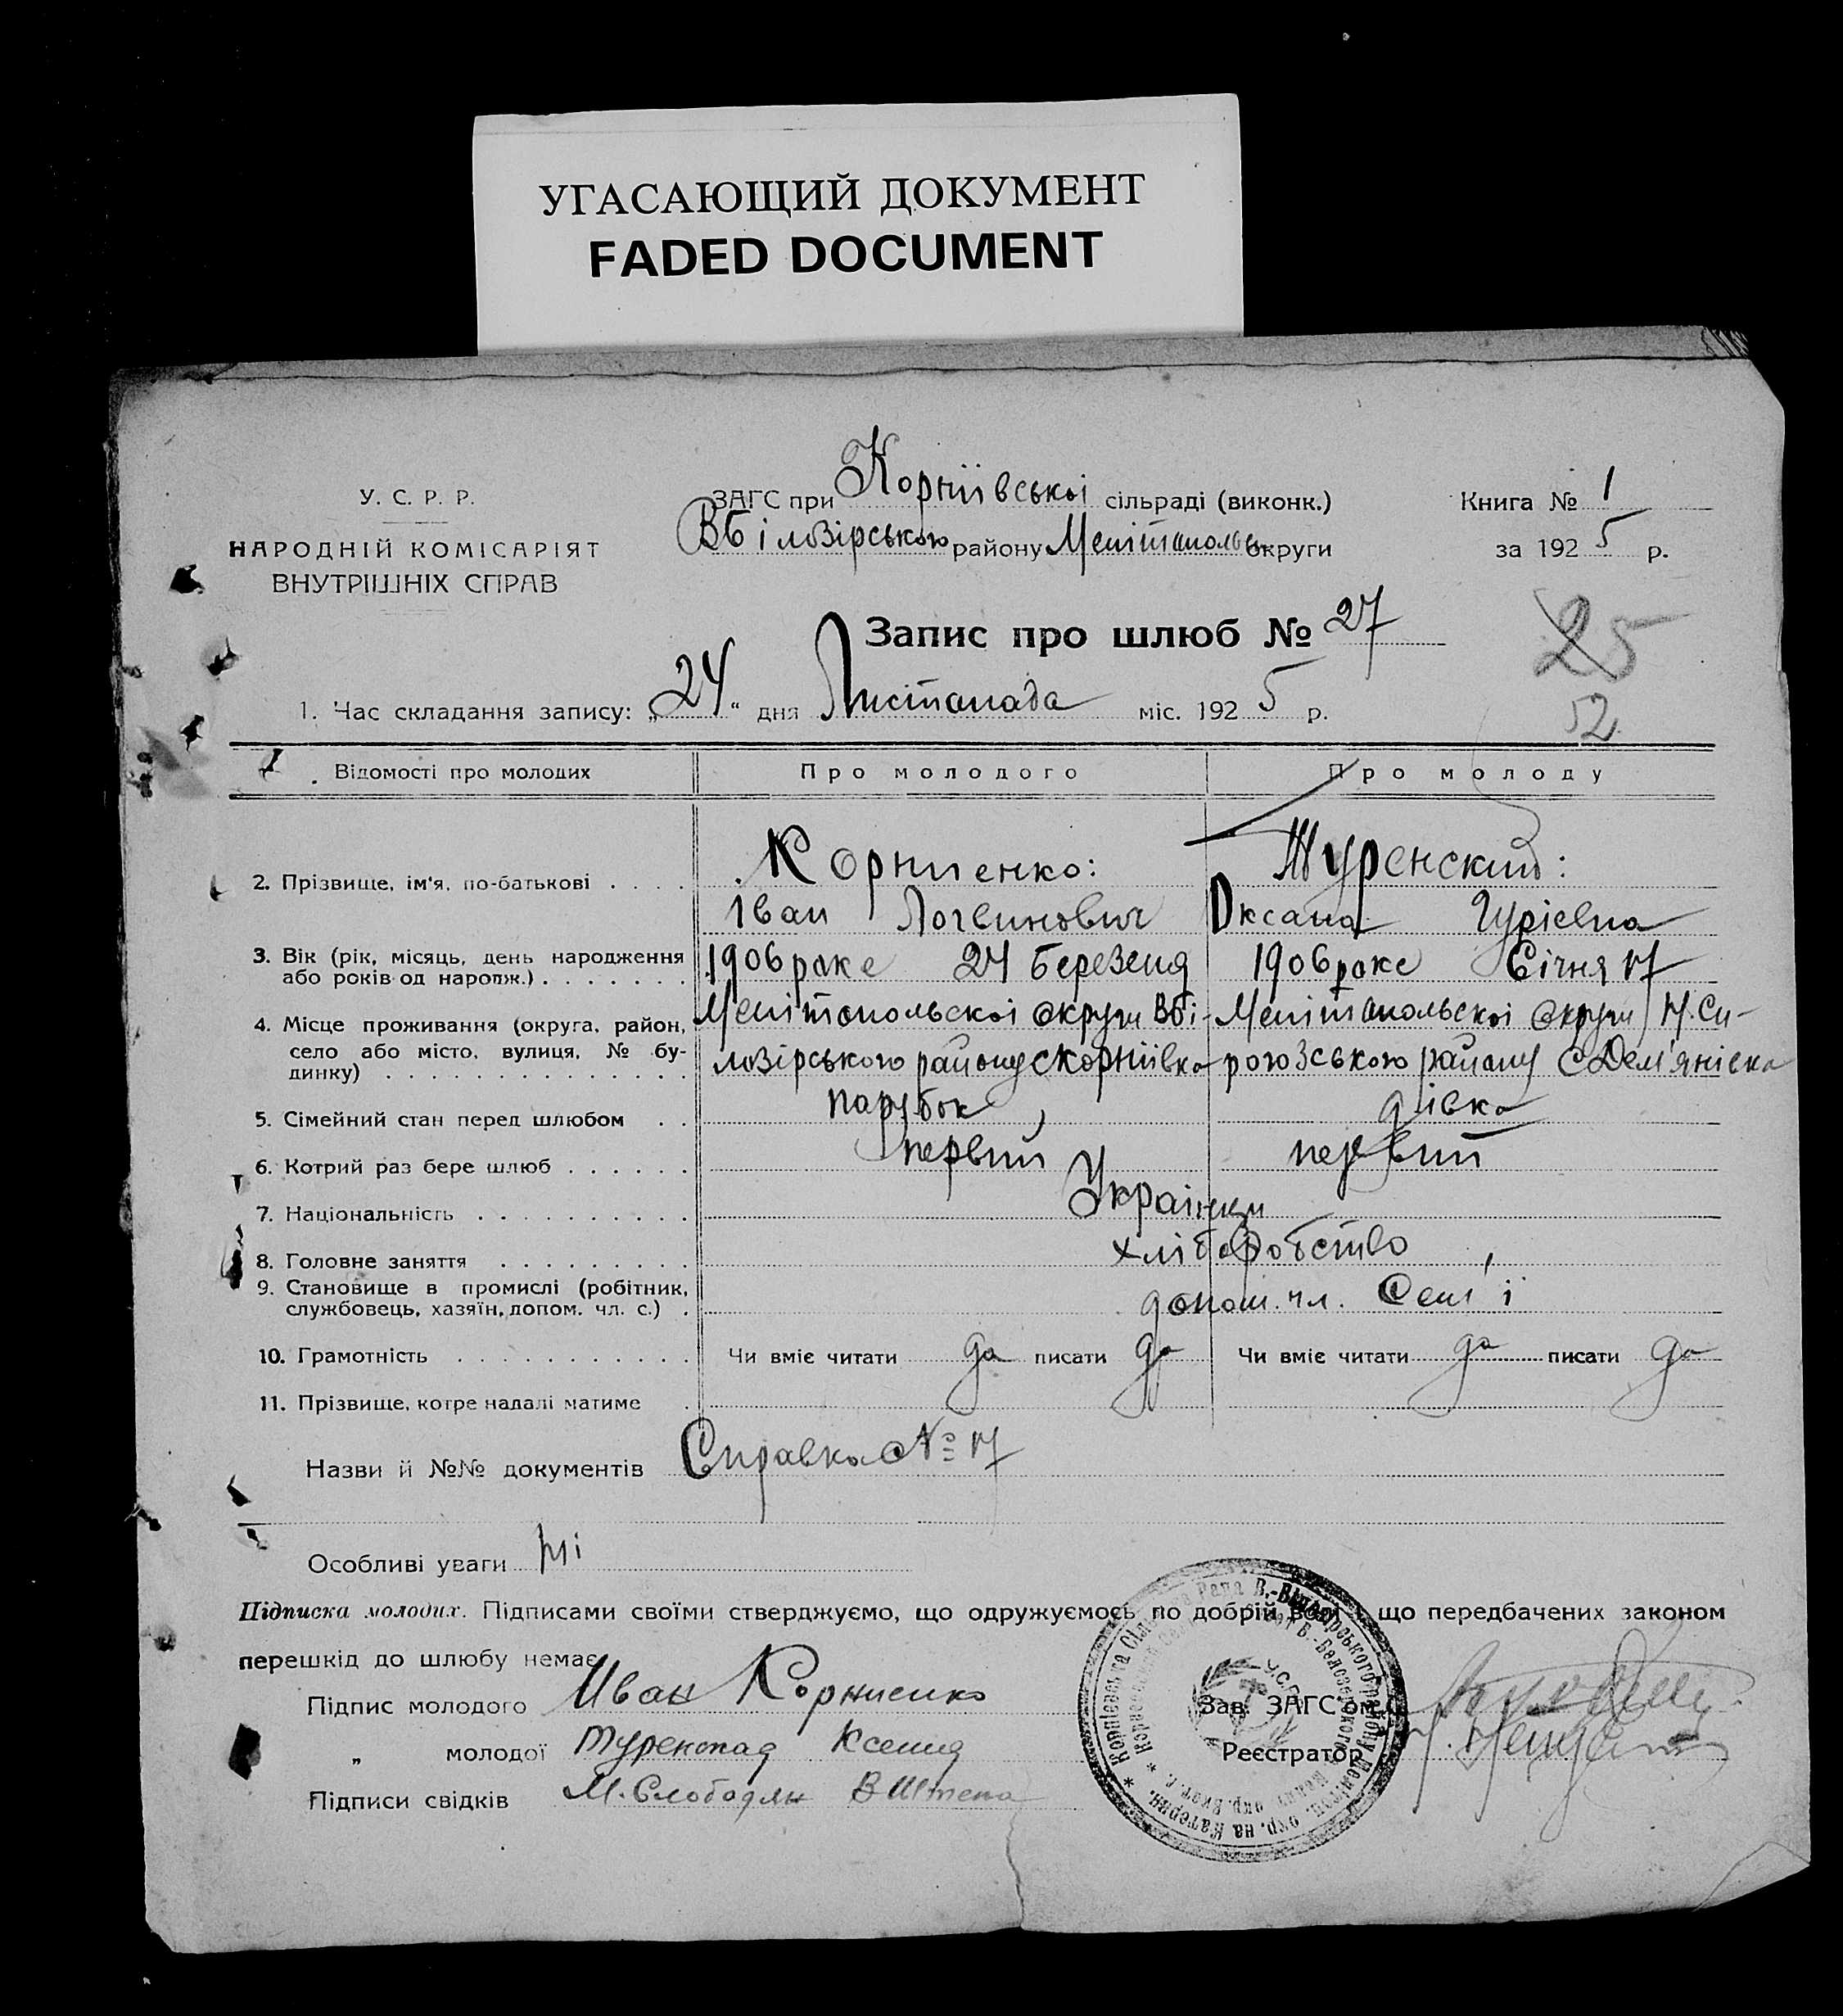 УГАСАЮЩИЙ ДОКУМЕНТ
FADED DOCUMENT
У. С. Р. Р.
НАРОДНІЙ КОМІСАРІЯТ
ВНУТРІШНІХ СПРАВ
ЗАГС при Корніівської сільраді (виконк.)
Вбілозірського району Мелітопольс округи
Книга № 1
за 1925 р.
Запис про шлюб № 27
25
52
1. Час складання запису: „24“ дня Листопада міс. 1925 р.
Відомості про молодих Про молодого Про молоду
2. Прізвище, ім'я, по-батькові . . . . Корниенко: Туренский:
Іван Логвинович Оксана Гуріевна
3. Вік (рік, місяць, день народження 1906 роке 24 березеня 1906 роке Січня 17
або років од народж.) . . . . . . .
4. Місце проживання (округа, район, Мелітопольскоі округи Вбі- Мелітопольскоі округи Н.Си-
село або місто, вулиця, № бу- лозірського району с Корніівка рогозського району С Дем'янівка
динку) . . . . . . . . . . . . . . .
5. Сімейний стан перед шлюбом . . парубок дівка
6. Котрий раз бере шлюб . . . . . . первий первий
7. Національність . . . . . . . . . . Українци
8. Головне заняття . . . . . . . . . хліборобство
9. Становище в промислі (робітник, допом. чл. Сем'ї
службовець, хазяїн, допом. чл. с.) .
10. Грамотність . . . . . . . . . . . Чи вміє читати да писати да Чи вміє читати да писати да
11. Прізвище, котре надалі матиме .
Назви й №№ документів Справка № 17
Особливі уваги ні
Підписка молодих. Підписами своїми стверджуємо, що одружуємось по добрій волі і що передбачених законом
перешкід до шлюбу немає
Підпис молодого Иван Корниенко
Зав. ЗАГС'ом
„ молодої Туренская Ксения
Реєстратор
Підписи свідків М. Слободян В Штепа